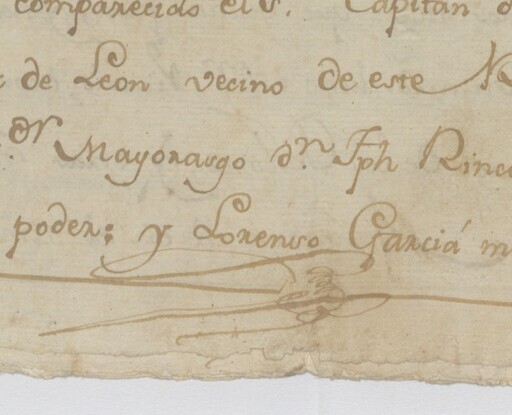 comparecido el S.r Capitan
de Leon vecino de este
Mayorasgo d.n Jph Rinc
poder; y Lorenso Garciá